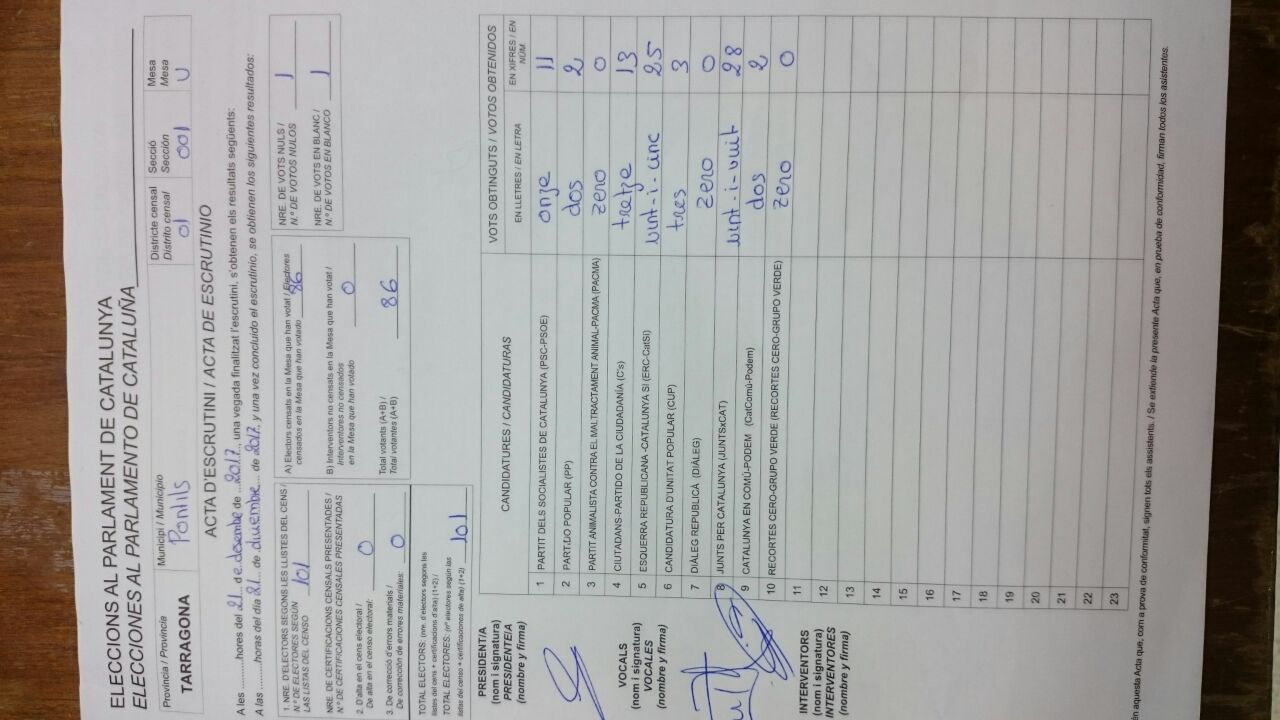 ELECCIONS AL PARLAMENT DE CATALUNYA
ELECCIONES AL PARLAMENTO DE CATALUÑA
Província / Provincia
TARRAGONA
Municipi / Municipio
Pontils
Districte censal
Distrito censal
01
Secció
Sección
001
Mesa
Mesa
U
ACTA D'ESCRUTINI / ACTA DE ESCRUTINIO
A les ............hores del 21 de desembre de 2017, una vegada finalitzat l'escrutini, s'obtenen els resultats següents:
A las ............horas del día 21 de diciembre de 2017, y una vez concluido el escrutinio, se obtienen los siguientes resultados:
1. NRE. D'ELECTORS SEGONS LES LLISTES DEL CENS /
N.º DE ELECTORES SEGÚN
LAS LISTAS DEL CENSO 101
NRE. DE CERTIFICACIONS CENSALS PRESENTADES /
N.º DE CERTIFICACIONES CENSALES PRESENTADAS
2. D'alta en el cens electoral /
De alta en el censo electoral: 0
3. De correcció d'errors materials /
De corrección de errores materiales: 0
TOTAL ELECTORS: (nre. d'electors segons les
llistes del cens + certificacions d'alta) (1+2) /
TOTAL ELECTORES: (nº electores según las
listas del censo + certificaciones de alta) (1+2) 101
A) Electors censats en la Mesa que han votat / Electores
censados en la Mesa que han votado 86
B) Interventors no censats en la Mesa que han votat /
Interventores no censados
en la Mesa que han votado 0
Total votants (A+B) /
Total votantes (A+B) 86
NRE. DE VOTS NULS /
N.º DE VOTOS NULOS 1
NRE. DE VOTS EN BLANC /
N.º DE VOTOS EN BLANCO 1
CANDIDATURES / CANDIDATURAS
VOTS OBTINGUTS / VOTOS OBTENIDOS
EN LLETRES / EN LETRA
EN XIFRES / EN NÚM.
1 PARTIT DELS SOCIALISTES DE CATALUNYA (PSC-PSOE) onze 11
2 PARTIDO POPULAR (PP) dos 2
3 PARTIT ANIMALISTA CONTRA EL MALTRACTAMENT ANIMAL-PACMA (PACMA) zero 0
4 CIUTADANS-PARTIDO DE LA CIUDADANÍA (C's) tretze 13
5 ESQUERRA REPUBLICANA -CATALUNYA SÍ (ERC-CatSÍ) vint-i-cinc 25
6 CANDIDATURA D'UNITAT POPULAR (CUP) tres 3
7 DIÀLEG REPUBLICÀ (DIÀLEG) zero 0
8 JUNTS PER CATALUNYA (JUNTSxCAT) vint-i-vuit 28
9 CATALUNYA EN COMÚ-PODEM (CatComú-Podem) dos 2
10 RECORTES CERO-GRUPO VERDE (RECORTES CERO-GRUPO VERDE) zero 0
11
12
13
14
15
16
17
18
19
20
21
22
23
PRESIDENT/A
(nom i signatura)
PRESIDENTE/A
(nombre y firma)
VOCALS
(nom i signatura)
VOCALES
(nombre y firma)
INTERVENTORS
(nom i signatura)
INTERVENTORES
(nombre y firma)
en aquesta Acta que, com a prova de conformitat, signen tots els assistents. / Se extiende la presente Acta que, en prueba de conformidad, firman todos los asistentes.